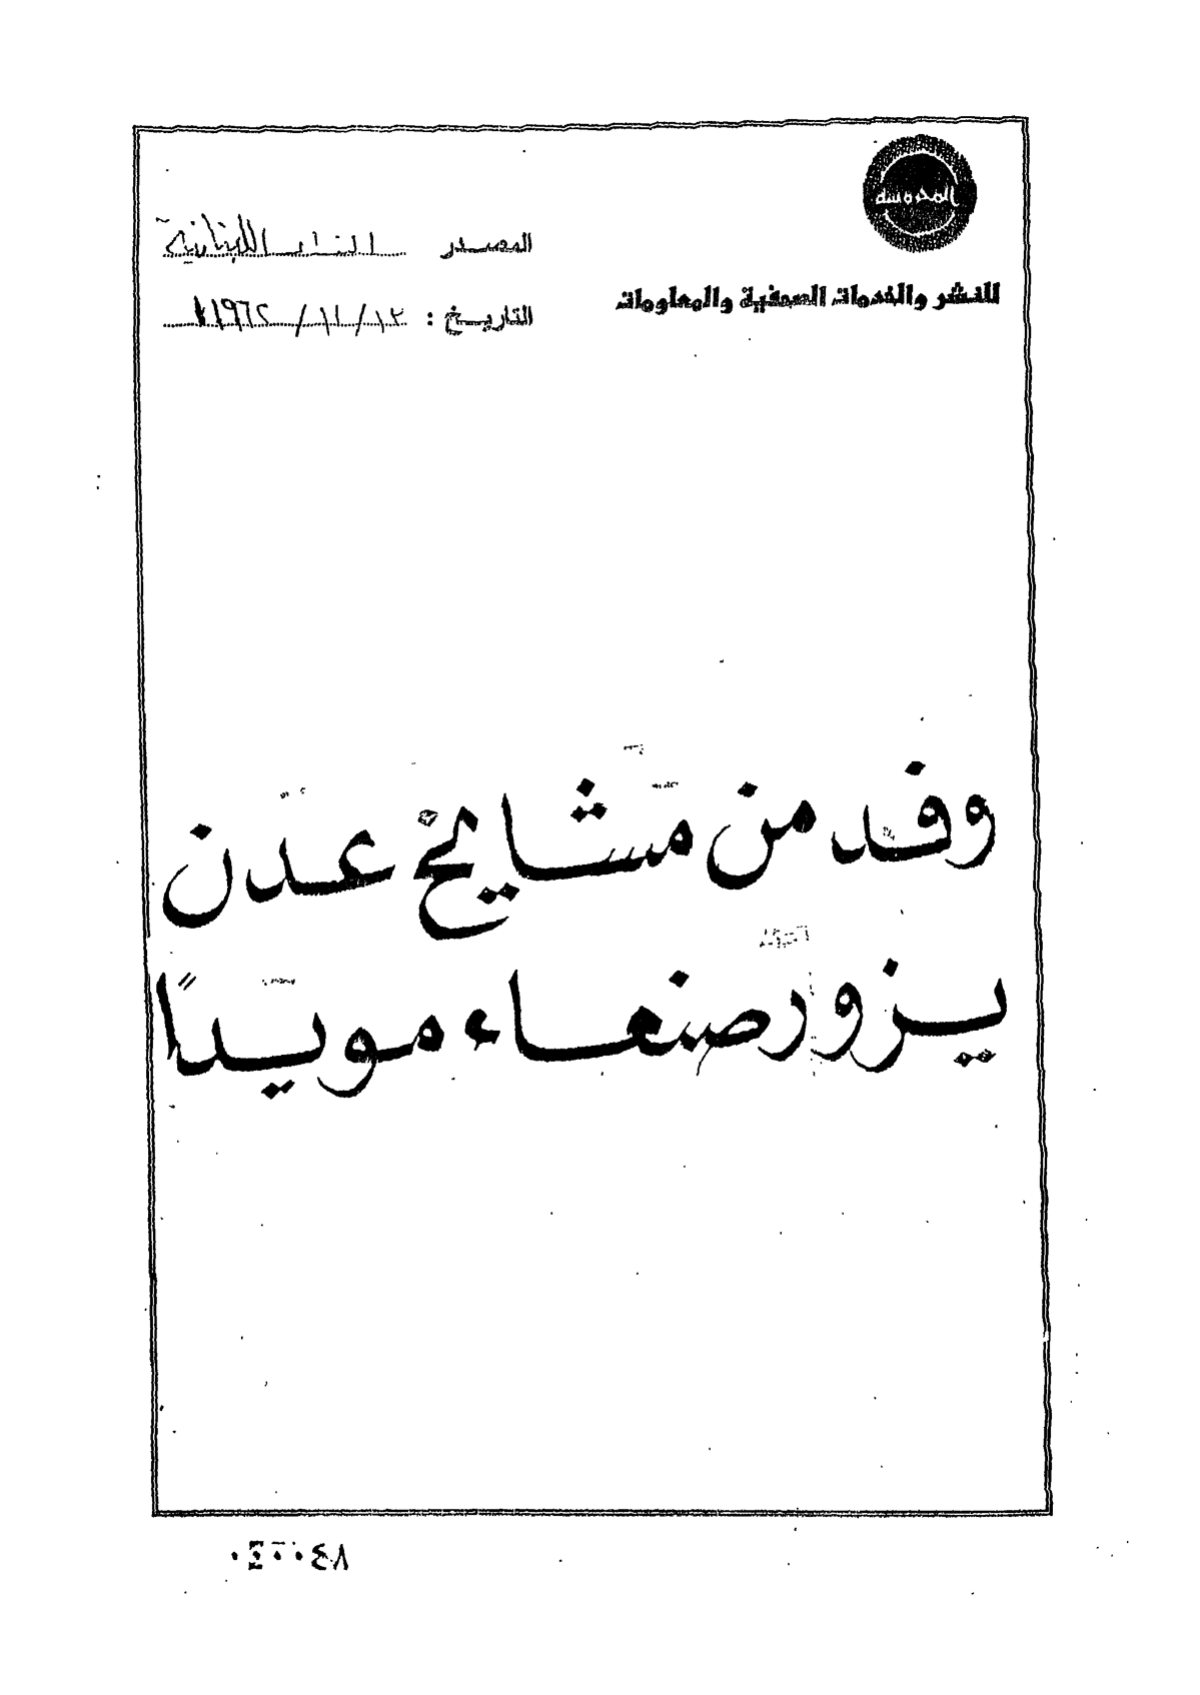 المحروسة
للنشر والخدمات الصحفية والمعلومات
المصدر النداء اللبنانية
التاريخ : ١٢ / ١١ / ١٩٦٢
وفد من مشايخ عدن
يزور صنعاء مويدًا